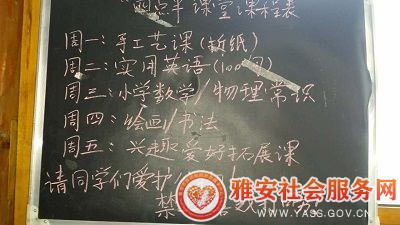 四点半课堂课程表
周一:手工艺课(折纸)
周二:实用英语(100句)
周三:小学数学/物理常识
周四:绘画/书法
周五:兴趣爱好拓展课
请同学们爱护
禁
雅安社会服务网
WWW.YASS.GOV.CN